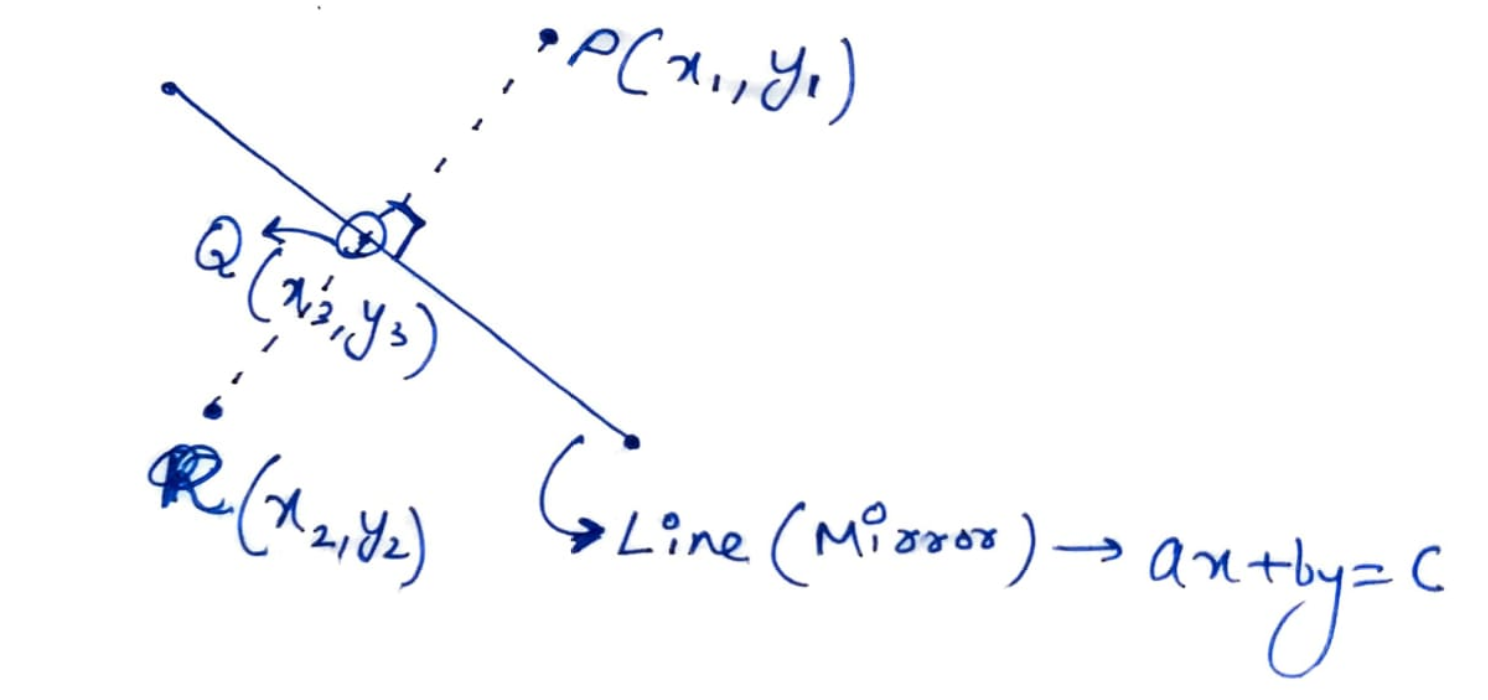 P(x₁, y₁)
Q(x₃, y₃)
R(x₂, y₂)
Line (Mirror) → ax+by= C